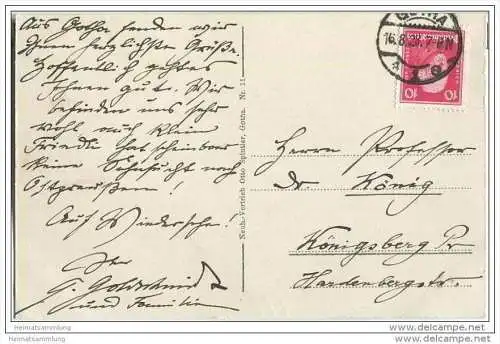 Aus Gotha senden wir
Ihnen herzlichste Grüße.
Hoffentlich geht es
Ihnen gut. Wir
befinden uns sehr
wohl, auch klein
Friedli hat scheinbar
keine Sehnsucht nach
Ostpreußen!
Auf Wiedersehn!
Ihr
G. Goldschmidt
und Familie
Neuh.-Vertrieb Otto Spindler, Gotha. Nr. 11
GOTHA
16.8.29.
10 10
Herrn Professor
Dr. König
Königsberg Pr
Hardenbergstr.
Heimatsammlung
www.heimatsammlung.de